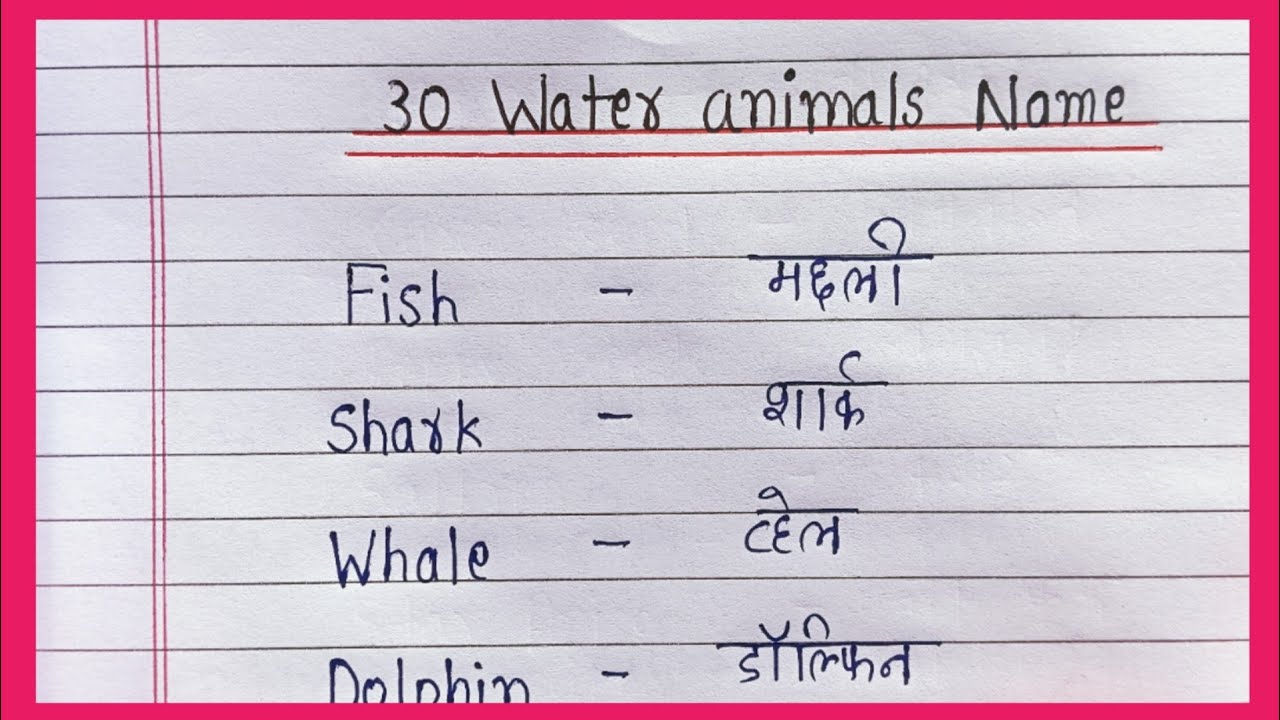 30 Water animals Name
Fish - मछली
Shark - शार्क
Whale - व्हेल
Dolphin - डॉल्फिन